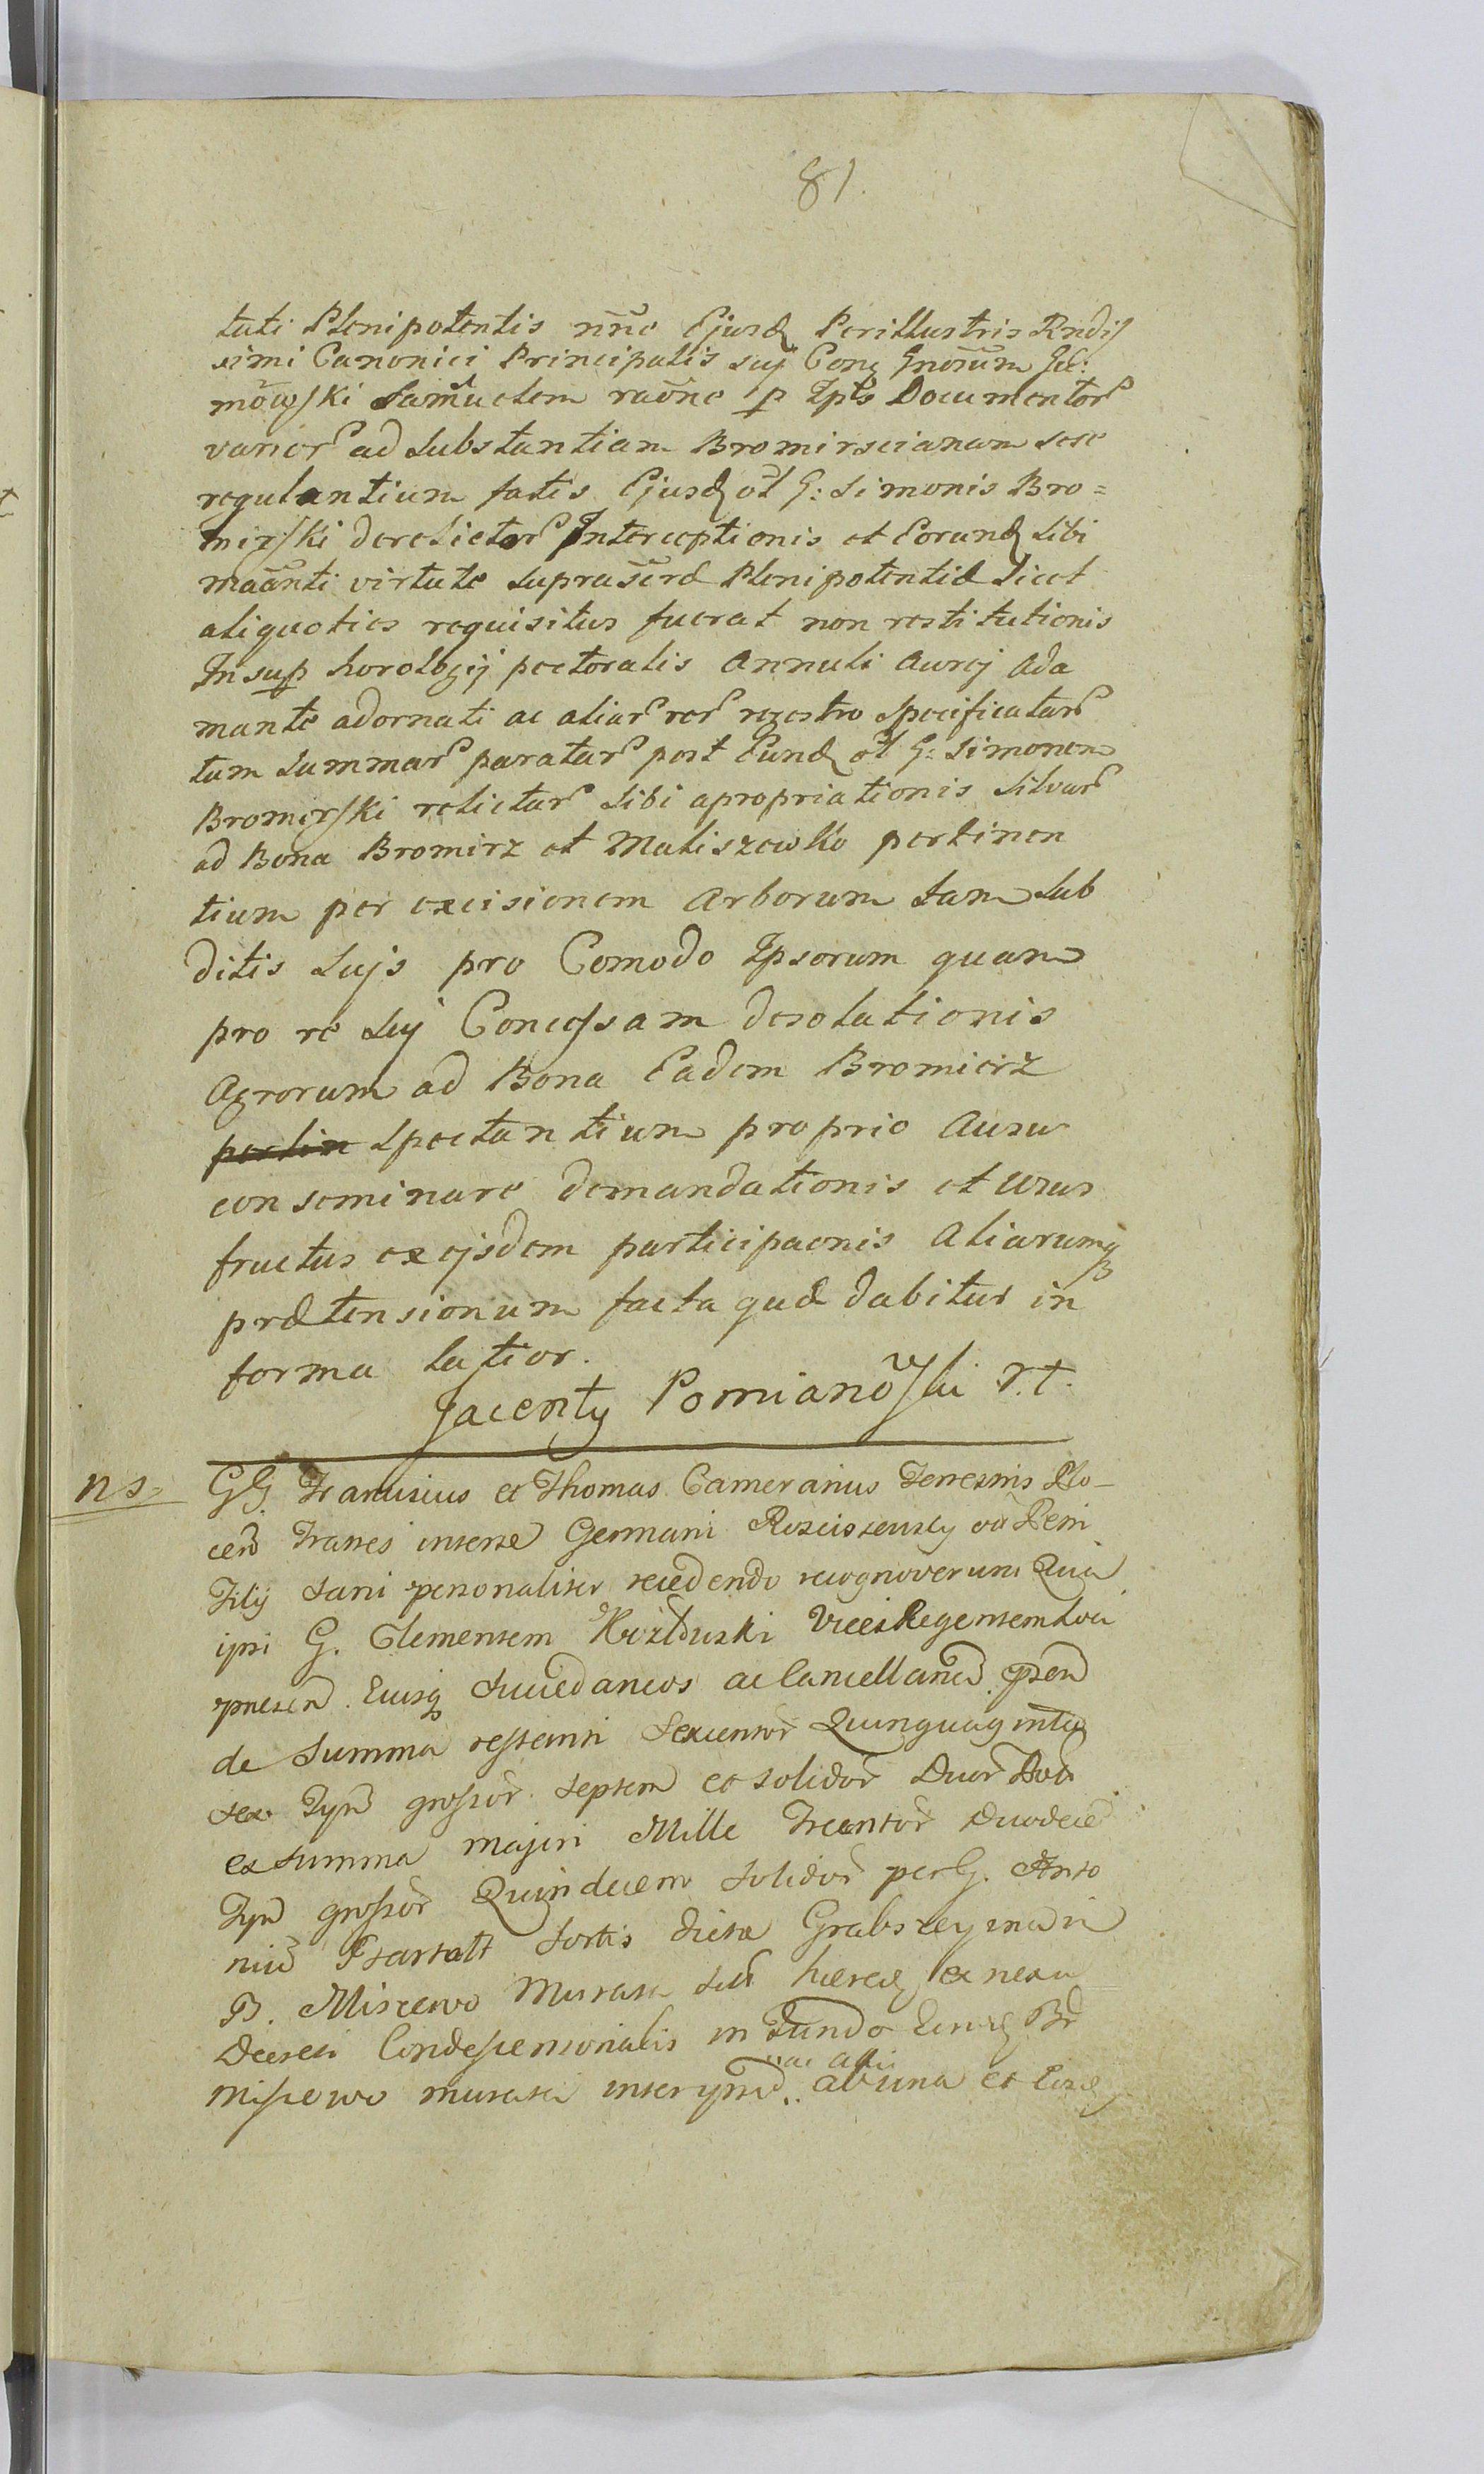 81.
tuti Plenipotentis nõne Ejusd Perillustris Rndis
simi Canonici Principalis suj Cong Gnosum
mowski Samuelem raõne p Ipls Documentor
varior ad Substantiam Bromirscianam sese
regulantium fatis Ejusd ol G: Simonis Bro=
mirski derelictor Interceptionis et Eorund Sibi
maãnti virtute suprascrd Plenipotentiæ licet
aliquoties requisitus fuerat non restitutionis
Insup horologij pectoralis Annuli Aurej Ada
mante adornati ac aliar rer regestro specificatar
tum Summar paratar post Eund ol G: Simonem
Bromirski relictar Sibi apropriationis Silvar
ad Bona Bromirz et Maliszewko pertinen
tium per excisionem Arborum tam Sub
ditis Sujs pro Comodo Ipsorum quam
pro re Suj Concessam desolationis
Agrorum ad Bona Eadem Bromierz
pertin Spectantium proprio Ausu
con seminare demandationis et usus
fructus ex ejsdem participaonis Aliarumq
prætensionum facta quæ dabitur in
forma latior.
Jacenty Pomianowski r.t.
ns. GG. Franciscus et Thomas Camerarius Terrestris Plo-
cen Fratres inter se Germani Rosciszewscy
Filij Sani personaliter recedendo recognoverunt Quia
ipsi G. Clementem Vices Regentem Loci
præsen Eiusq Succedaneos ac Cancellariã
de Summa restanti Sexcentor Quinquaginta
sex Fpn grossor septem et solidor Duor
ex Summa majori Mille Trecentor Duodecim
Fpn grossor Quindecem Solidor per G. Anto
niũ Sortis dictæ Grabszczyzna in
B. Miszewo Murata hæred ex nexu
Decreti Condescensorialis in Fundo B
Miszewo murata inter ipsũ ac alios ab una et